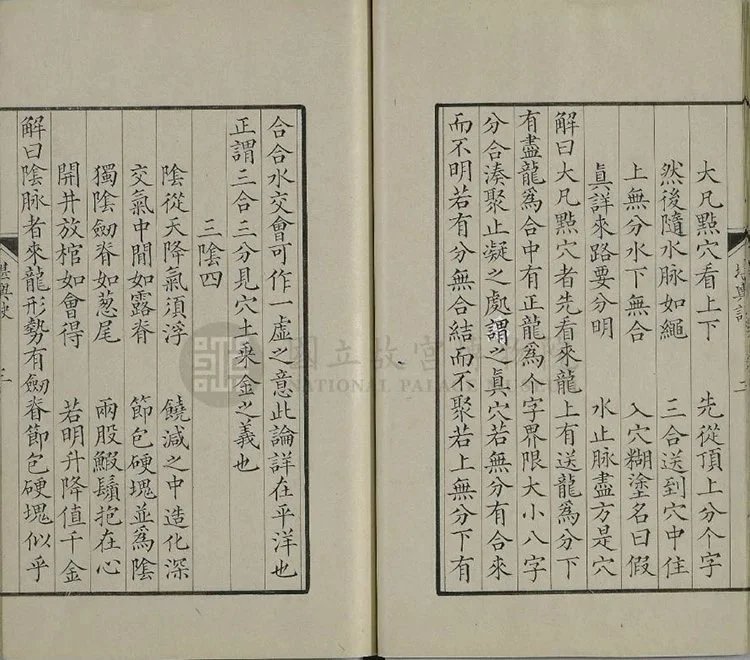 大凡點穴看上下 先從頂上分个字
然後隨水脉如繩 三合送到穴中住
上無分水下無合 入穴糊塗名曰假
眞詳來路要分明 水止脉盡方是穴
解曰大凡點穴者先看來龍上有送龍爲分下
有盡龍爲合中有正龍爲个字界限大小八字
分合湊聚止凝之處謂之眞穴若無分有合來
而不明若有分無合結而不聚若上無分下有
合合水交會可作一虛之意此論詳在平洋也
正謂三合三分見穴土乘金之義也
三陰四
陰從天降氣須浮 饒減之中造化深
交氣中間如露脊 節包硬塊並爲陰
獨陰劒脊如葱尾 兩股鰕鬚抱在心
開井放棺如會得 若明升降值千金
解曰陰脉者來龍形勢有劒脊節包硬塊似乎
堪輿訣
三
二
國立故宮
NATIONAL PALA